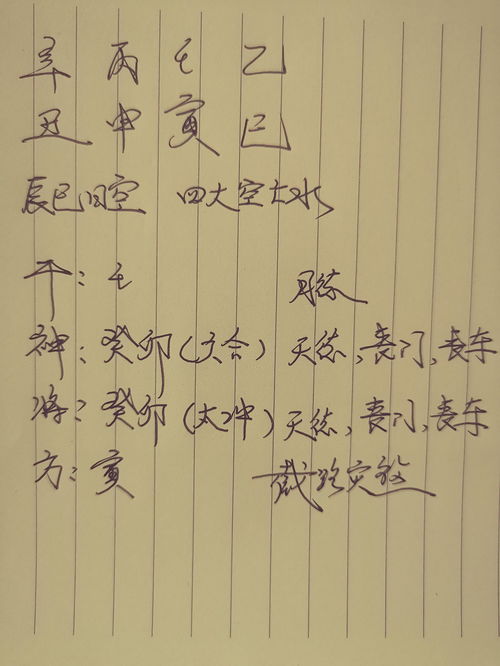 辛 丙 壬 乙
丑 申 寅 巳
辰巳日空 四大空亡水
干:壬 月
神:癸卯(六合) 天,丧门,丧车
将:癸卯(太冲)天,丧门,丧车
方:寅 截路灾煞